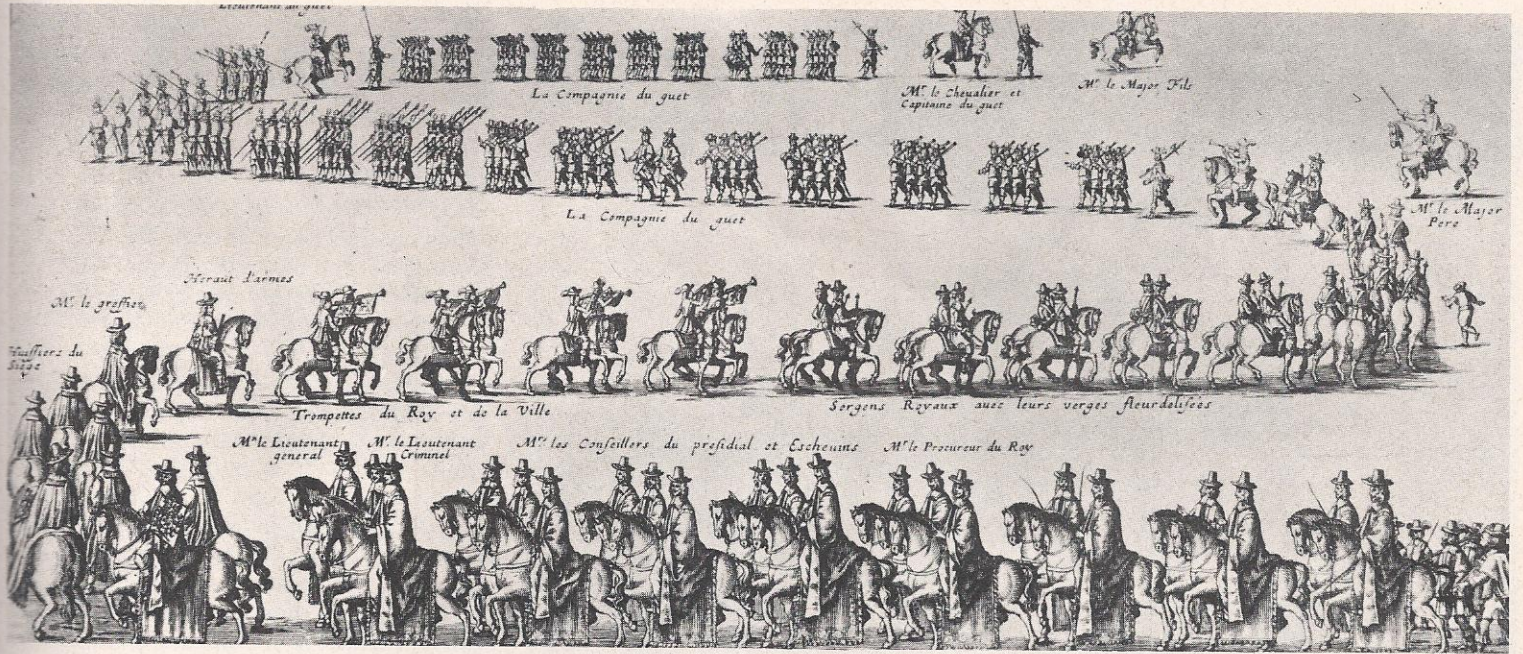 Lieutenant du guet
La Compagnie du guet
Mr. le Chevalier et
Capitaine du guet
Mr. le Major Fils
La Compagnie du guet
Mr. le Major
Pere
Heraut d'armes
Mr. le greffier
Huissiers du
Siege
Trompettes du Roy et de la Ville
Sergens Royaux auec leurs verges fleurdelisées
Mr. le Lieutenant
general
Mr. le Lieutenant
Criminel
Mrs. les Conseillers du presidial et Escheuins
Mr. le Procureur du Roy